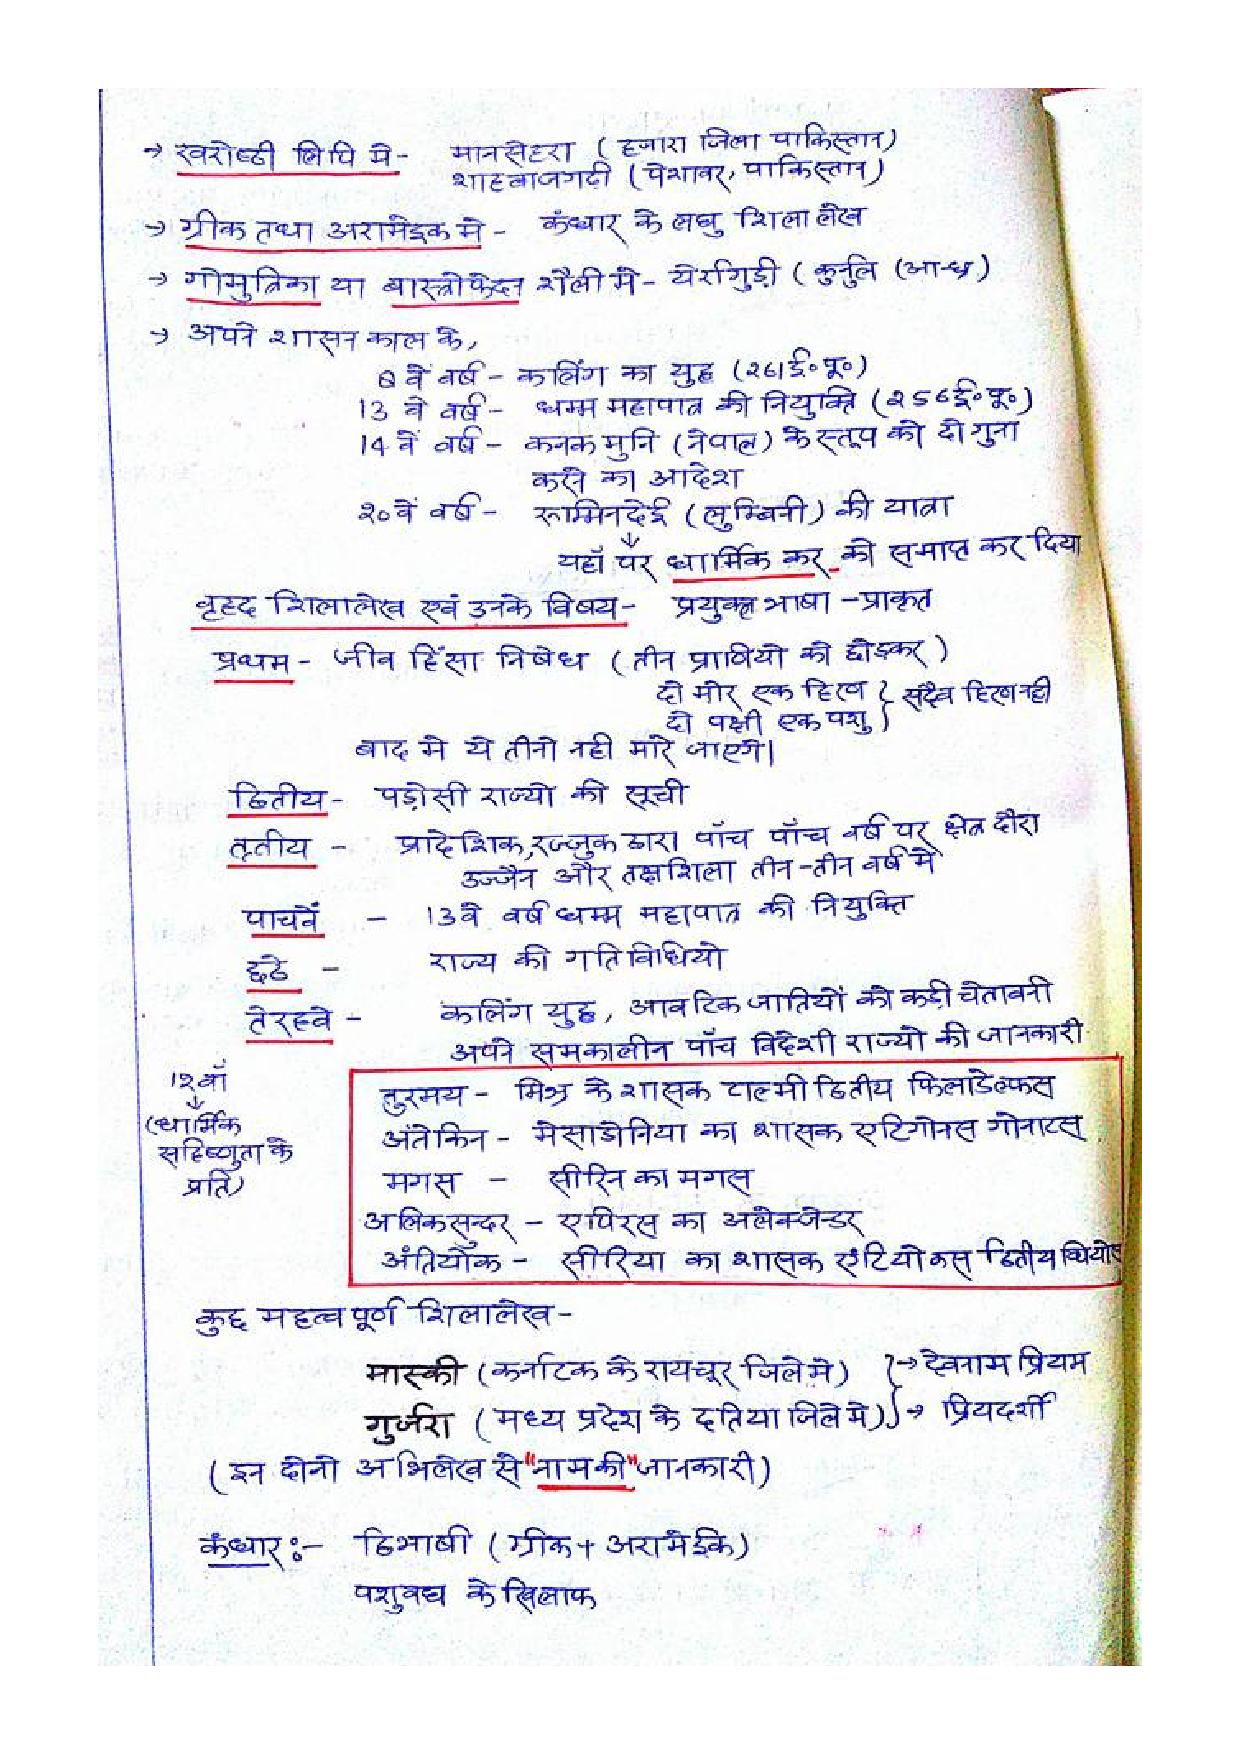 → खरोष्ठी लिपि मे- मानसेहरा ( हजारा जिला पाकिस्तान)
शाहबाजगढी ( पेशावर, पाकिस्तान)
→ ग्रीक तथा अरामेइक मे - कंधार के लघु शिला लेख
→ गोमुत्रिका या बास्त्रोफेदन शैली मे- येर्रागुड़ी ( कुर्नुल (आन्ध्र)
→ अपने शासन काल के,
8 वे वर्ष - कलिंग का युद्ध (261 ई॰ पू॰)
13 वे वर्ष - धम्म महापात्र की नियुक्ति (256 ई॰ पू॰)
14 वें वर्ष - कनक मुनि (नेपाल) के स्तूप को दो गुना
करने का आदेश
20वें वर्ष - रूम्मिनदेई (लुम्बिनी) की यात्रा
↓
यहाँ पर धार्मिक कर को समाप्त कर दिया
वृहद शिलालेख एवं उनके विषय- प्रयुक्त भाषा - प्राकृत
प्रथम - जीव हिंसा निषेध ( तीन प्राणियो को छोड़कर )
दो मोर एक हिरण } सदैव हिरण नही
दो पक्षी एक पशु }
बाद मे ये तीनो नही मारे जाएगे।
द्वितीय - पड़ोसी राज्यो की सूची
तृतीय - प्रादेशिक, रज्जुक द्वारा पाँच पाँच वर्ष पर क्षेत्र दौरा
उज्जैन और तक्षशिला तीन-तीन वर्ष मे
पाचवें - 13वे वर्ष धम्म महापात्र की नियुक्ति
छठे - राज्य की गतिविधियो
तेरहवे - कलिंग युद्ध, आवटिक जातियों को कड़ी चेतावनी
अपने समकालीन पाँच विदेशी राज्यो की जानकारी
12वाँ
↓
(धार्मिक
सहिष्णुता के
प्रति)
तुरमय - मिश्र के शासक टाल्मी द्वितीय फिलाडेल्फस
अंतेकिन - मेसाडोनिया का शासक एटिगोनस गोनाटस
मगस - सीरिन का मगस
अलिकसुन्दर - एपिरस का अलेक्जेन्डर
अंतियोक - सीरिया का शासक एंटियोकस द्वितीय थियोस
कुछ महत्वपूर्ण शिलालेख -
मास्की (कर्नाटक के रायचूर जिले मे) } → देवनाम प्रियम
गुर्जरा ( मध्य प्रदेश के दतिया जिले मे) } → प्रियदर्शी
( इन दोनो अभिलेख से "नाम की" जानकारी )
कंधार :- द्विभाषी ( ग्रीक + अरामेईक)
पशुवध के खिलाफ